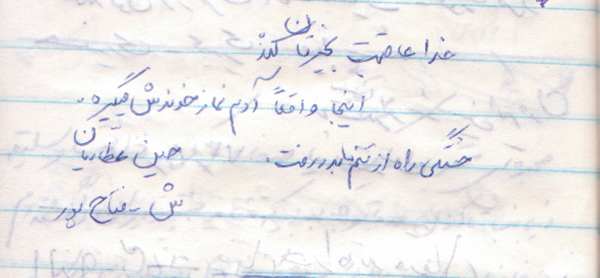 خدا عاقبت بخیرتان کند
اینجا واقعاً آدم نماز خوندنش میگیره.
خستگی راه از تنم بدر رفت. حسین عطاریان
ش - فتاح پور